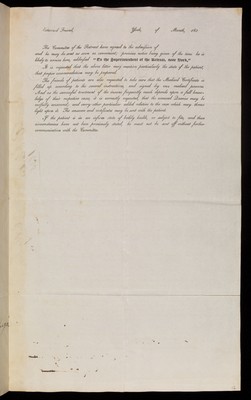 Retreat, York, of Month, 185
The Committee of the Retreat have agreed to the admission of
and he may be sent as soon as convenient; previous notice being given of the time he is
likely to arrive here, addressed "To the Superintendent of the Retreat, near York."
It is requested that the above letter may mention particularly the state of the patient,
that proper accommodation may be prepared.
The friends of patients are also requested to take care that the Medical Certificate is
filled up according to the annexed instructions, and signed by two medical persons.
And as the successful treatment of the insane frequently much depends upon a full know-
ledge of their respective cases, it is earnestly requested, that the annexed Queries may be
carefully answered; and every other particular added relative to the case which may throw
light upon it. The answers and certificate may be sent with the patient.
If the patient is in an infirm state of bodily health, or subject to fits, and these
circumstances have not been previously stated, he must not be sent off without further
communication with the Committee.